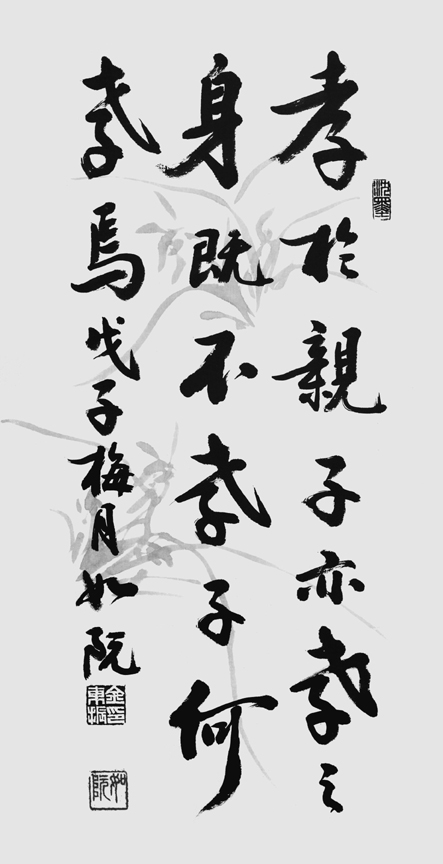 孝於親子亦孝之
身既不孝子何
孝焉戊子梅月如阮